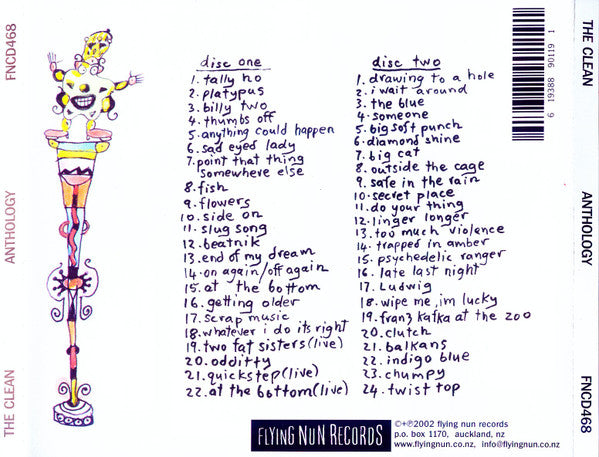 THE CLEAN
ANTHOLOGY
FNCD468
disc one
1. tally ho
2. platypus
3. billy two
4. thumbs off
5. anything could happen
6. sad eyed lady
7. point that thing
somewhere else
8. fish
9. flowers
10. side on
11. slug song
12. beatnik
13. end of my dream
14. on again/off again
15. at the bottom
16. getting older
17. scrap music
18. whatever i do its right
19. two fat sisters (live)
20. odditty
21. quickstep (live)
22. at the bottom (live)
disc two
1. drawing to a hole
2. i wait around
3. the blue
4. someone
5. big soft punch
6. diamond shine
7. big cat
8. outside the cage
9. safe in the rain
10. secret place
11. do your thing
12. linger longer
13. too much violence
14. trapped in amber
15. psychedelic ranger
16. late last night
17. Ludwig
18. wipe me, im lucky
19. franz kafka at the zoo
20. clutch
21. balkans
22. indigo blue
23. chumpy
24. twist top
FLYING NUN RECORDS
©+℗2002 flying nun records
p.o. box 1170, auckland, nz
www.flyingnun.co.nz, info@flyingnun.co.nz
9 19388 90119 1
THE CLEAN
ANTHOLOGY
FNCD468